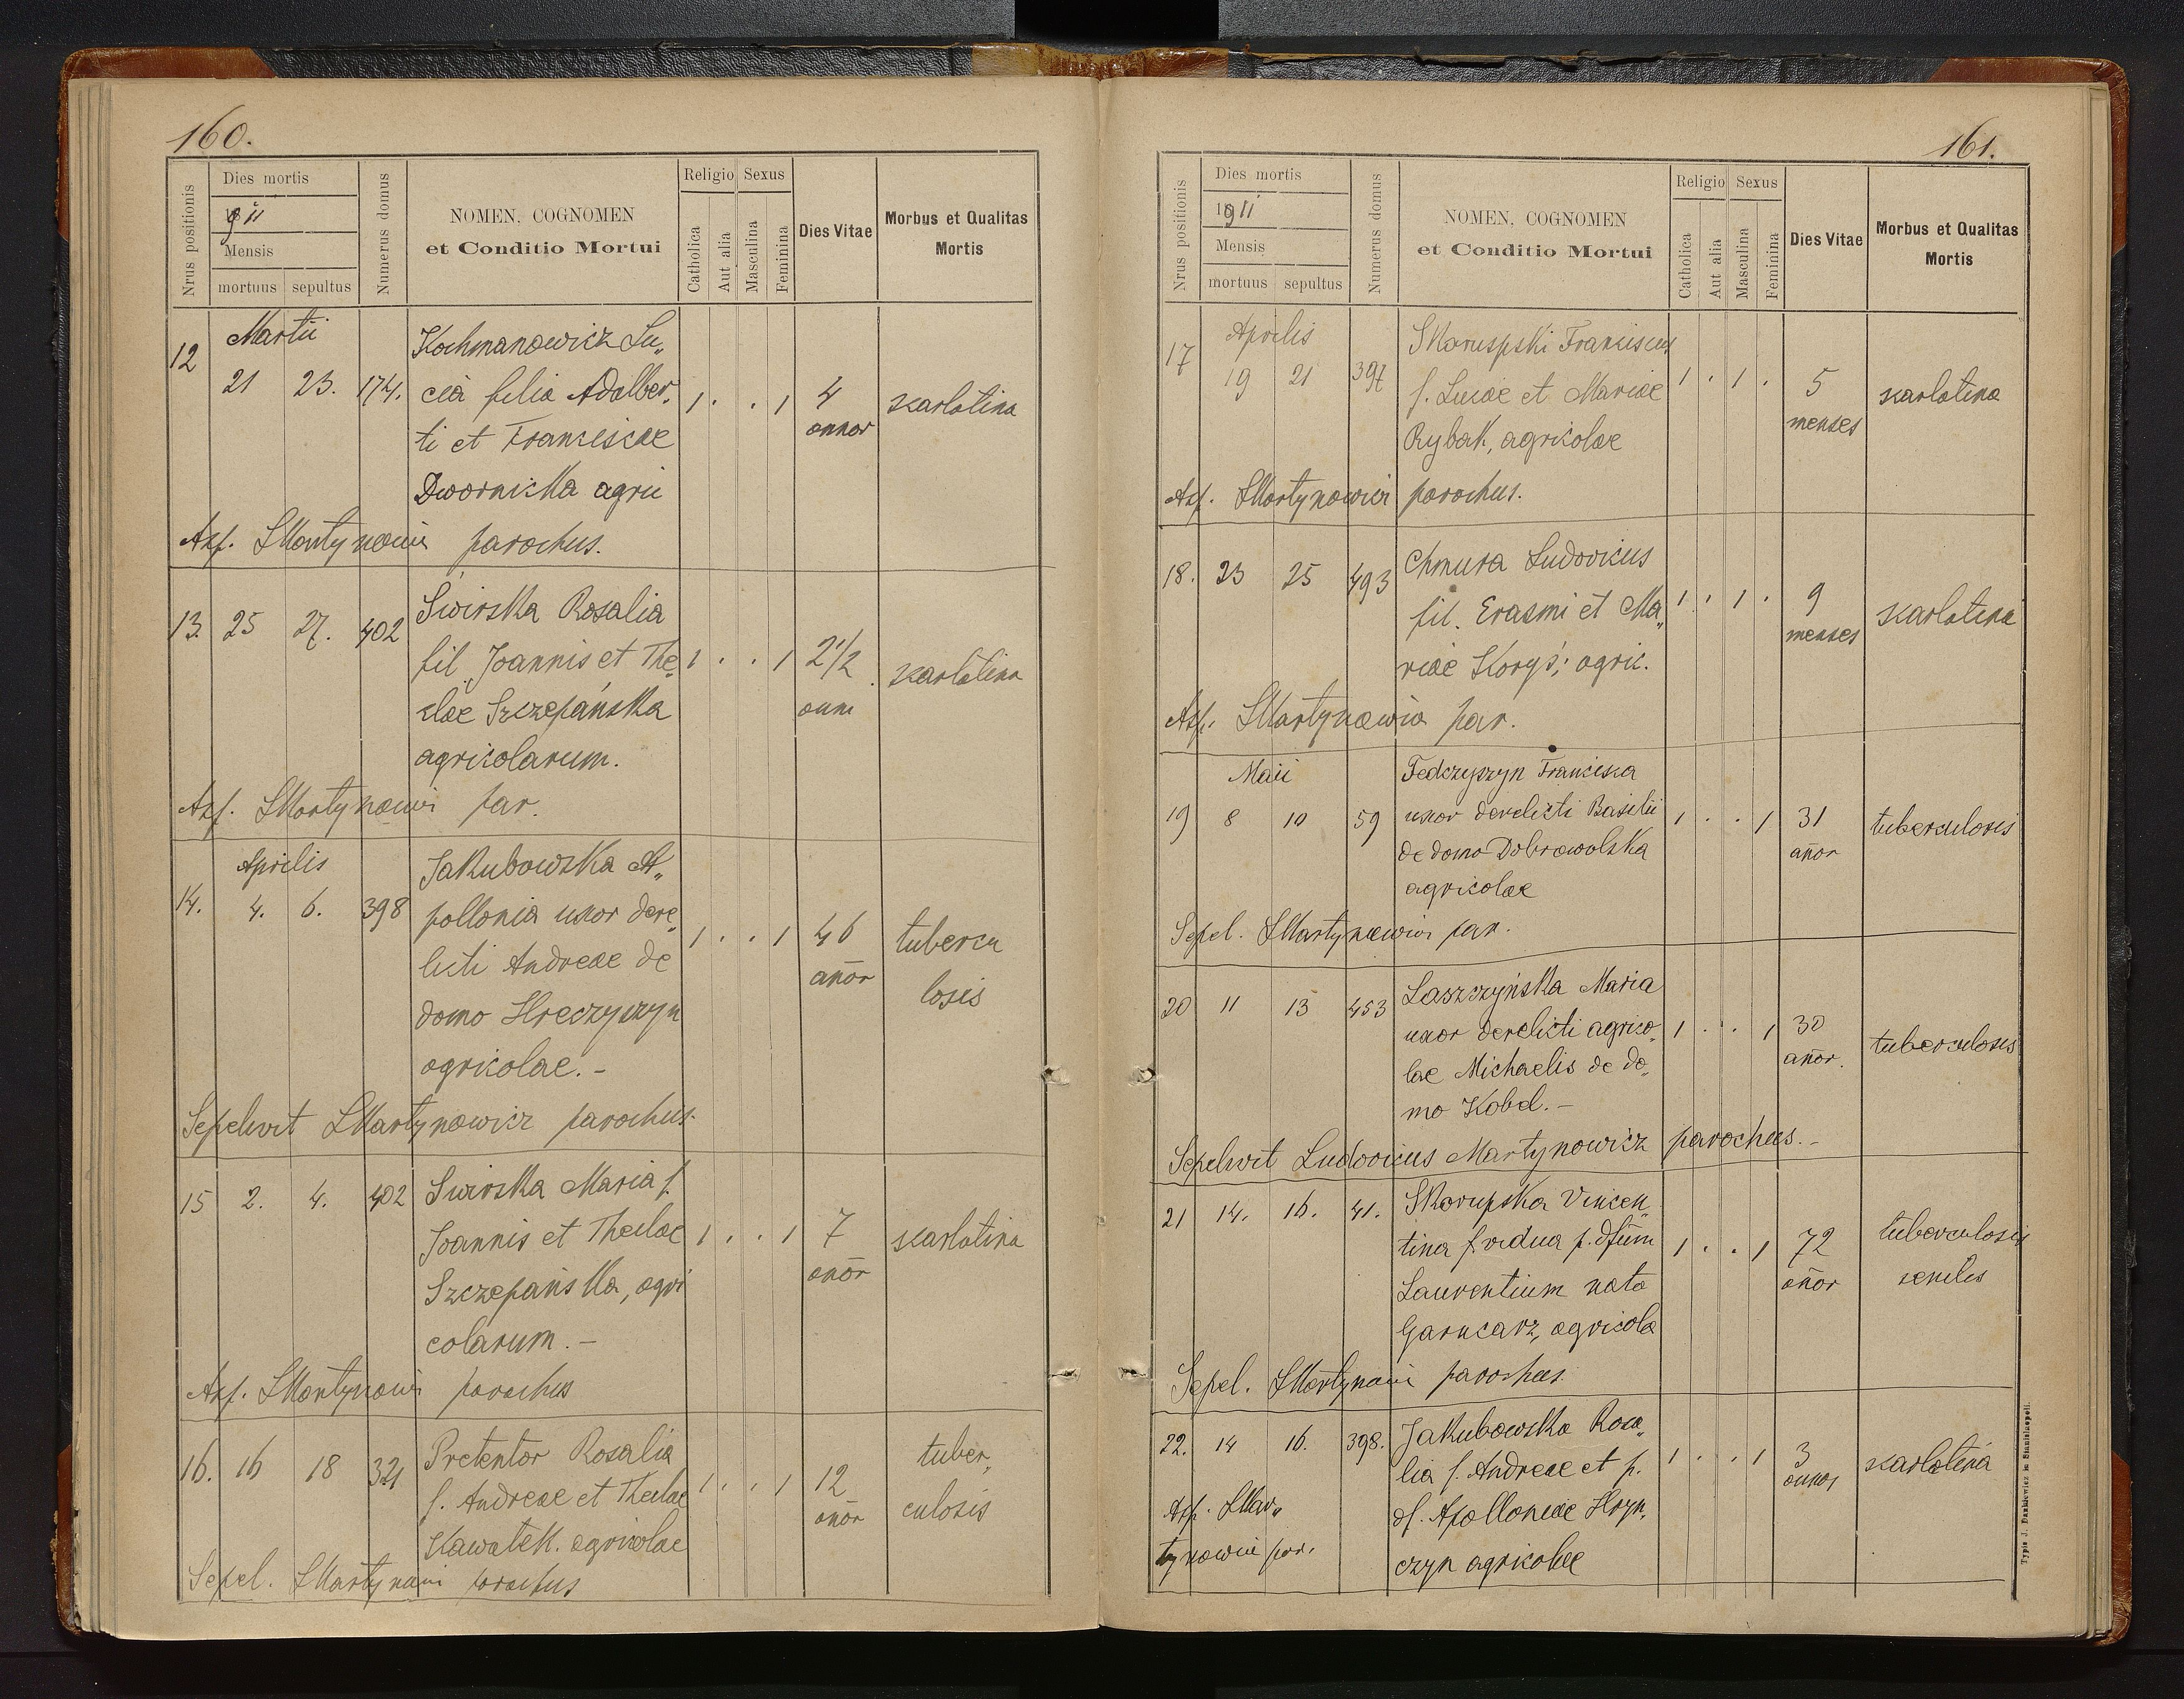 160.
Nrus positionis
Dies mortis
1911
Mensis
mortuus sepultus
Numerus domus
NOMEN, COGNOMEN
et Conditio Mortui
Religio Sexus
Catholica
Aut alia
Masculina
Feminina
Dies Vitae
Morbus et Qualitas
Mortis
Martii
12 21 23. 174.
Kochmanowicz Lu„
cia filia Adalber„
ti et Franciscae
Dwornicka agric
1 . . 1
4
annor
skarlatina
Asp. LMartynowicz parochus.
13. 25 27. 402
Świrska Rosalia
fil. Joannis et The„
clae Szczepańska
agricolarum.
1 . . 1
2 1/2
anni
skarlatina
Asp. LMartynowicz par.
Aprilis
14. 4. 6. 398
Jakubowska A„
pollonia uxor dere„
licti Andreae de
domo Hreczyszyn
agricolae. -
1 . . 1
46
añor
tubercu
losis
Sepelivit LMartynowicz parochus.
15 2. 4. 402
Swirska Maria f.
Joannis et Theclae
Szczepańska, agri
colarum. -
1 . . 1
7
añor
skarlatina
Asp. LMartynowicz parochus
16. 16 18 321
Pretentor Rosalia
f. Andreae et Theclae
Kawatek. agricolae
1 . . 1
12
añor
tuber„
culosis
Sepel. LMartynowicz parochus
161.
Nrus positionis
Dies mortis
1911
Mensis
mortuus sepultus
Numerus domus
NOMEN, COGNOMEN
et Conditio Mortui
Religio Sexus
Catholica
Aut alia
Masculina
Feminina
Dies Vitae
Morbus et Qualitas
Mortis
Aprilis
17 19 21 397
Skoruspski Franciscus
f. Lucae et Mariae
Rybak, agricolae
1 . 1 .
5
menses
skarlatina
Asp. LMartynowicz parochus.
18. 23 25 493
Chmura Ludovicus
fil. Erasmi et Ma„
riae Koryś; agric.
1 . 1 .
9
menses
skarlatina
Asp. LMartynowicz par.
Maii
19 8 10 59
Fedczyszyn Francisca
uxor derelicti Basilii
de domo Dobrowolska
agricolae
1 . . 1
31
añor
tuberculosis
Sepel. LMartynowicz par.
20 11 13 453
Laszczyńska Maria
uxor derelicti agrico„
lae Michaelis de do„
mo Kobel. -
1 . . 1
30
añor.
tuberculosis
Sepelivit Ludovicus Martynowicz parochus. -
21 14. 16. 41.
Skorupska Vincen„
tina vidua p. dfum
Laurentium nata
Garncarz, agricola
1 . . 1
72
añor
tuberculosis
senilis
Sepel. LMartynowicz parochus.
22. 14 16. 398.
Jakubowska Rosa„
lia f. Andreae et p.
df. Apolloniae Hryn„
czyn agricolae
1 . . 1
3
annor
skarlatina
Asp. LMar„
tynowicz par.
Typis J. Dankiewicz in Stanislaopoli.